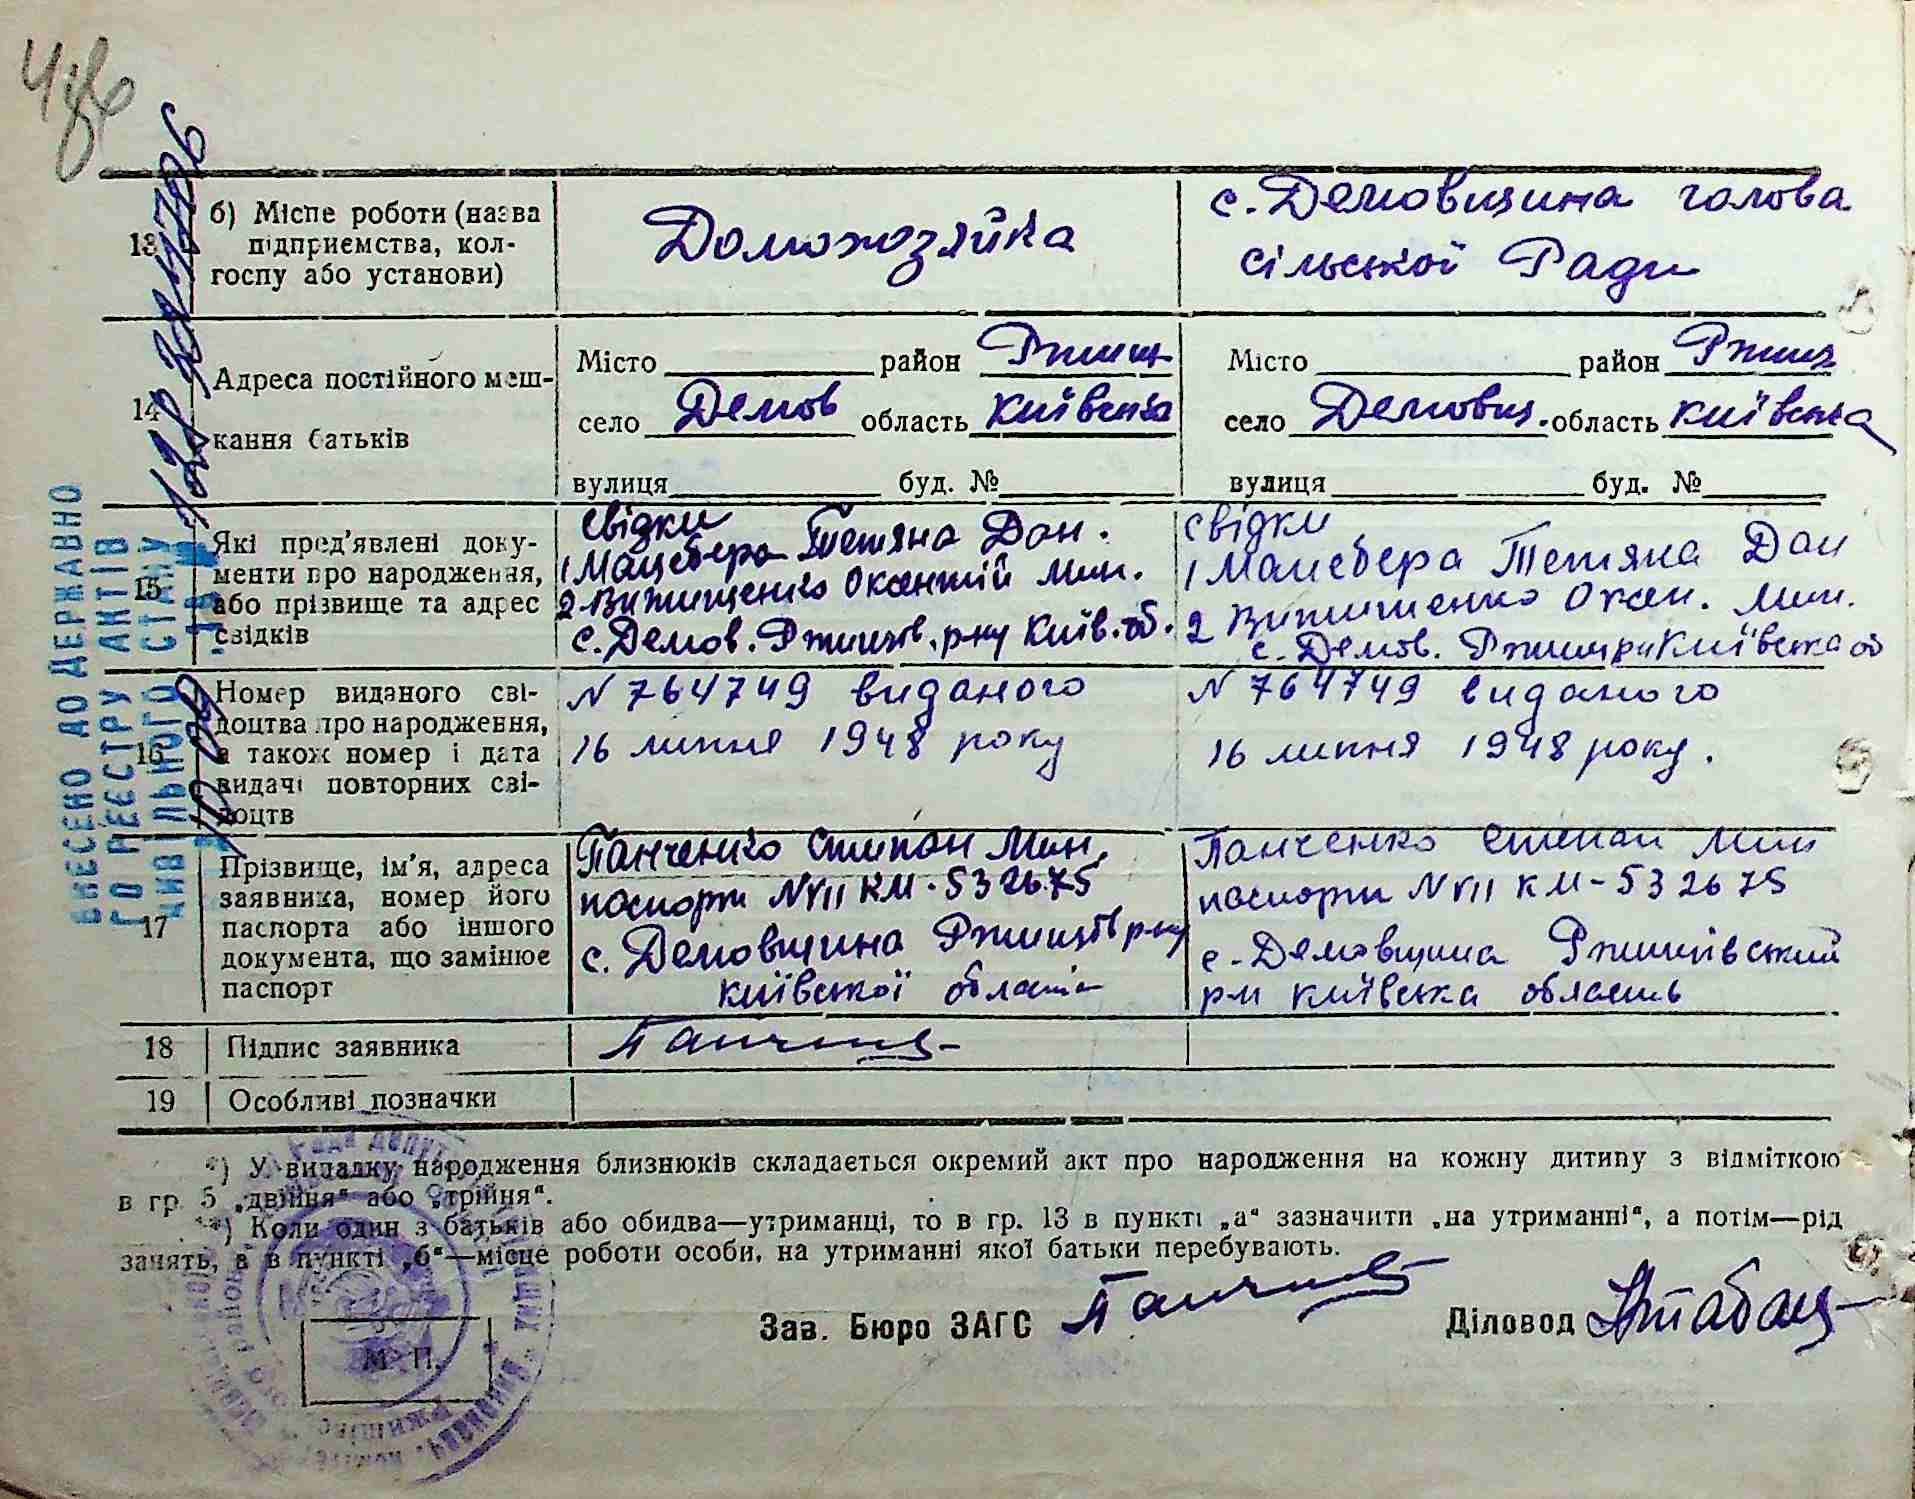 13 б) Місце роботи (назва підприємства, кол-
госпу або установи)
Домохозяйка
с. Демовщина голова
сільської Ради
14 Адреса постійного меш-
кання батьків
Місто район Ржищ
село Демов область Київська
вулиця буд. №
Місто район Ржищ
село Демовщ. область Київська
вулиця буд. №
15 Які пред'явлені доку-
менти про народження,
або прізвище та адрес
свідків
Свідки
1 Мацебера Тетяна Дан.
2 Оксентій Мих.
с. Демов. Ржищів. р-ну Київ. об.
свідки
1 Мацебера Тетяна Дан
2 Оксен. Мих.
с. Демов. Київська об
16 Номер виданого сві-
доцтва про народження,
а також номер і дата
видачі повторних сві-
доцтв
N 764749 виданого
16 липня 1948 року
N 764749 виданого
16 липня 1948 року.
17 Прізвище, ім'я, адреса
заявника, номер його
паспорта або іншого
документа, що замінює
паспорт
Панченко Степан Мин.
паспорт N VII КМ-532675
с. Демовщина Ржищів р-ну
київської області
Панченко Степан Мин
паспорт N VII КМ-532675
с. Демовщина Ржищівський
р-н київська область
18 Підпис заявника
19 Особливі позначки
*) У випадку народження близнюків складається окремий акт про народження на кожну дитину з відміткою
в гр. 5 „двійня“ або „трійня“.
**) Коли один з батьків або обидва—утриманці, то в гр. 13 в пункті „а“ зазначити „на утриманні“, а потім—рід
занять, а в пункті „б“—місце роботи особи, на утриманні якої батьки перебувають.
Зав. Бюро ЗАГС
Діловод
М. П.
ВНЕСЕНО ДО ДЕРЖАВНО
ГО РЕЄСТРУ АКТІВ
ЦИВІЛЬНОГО СТАНУ